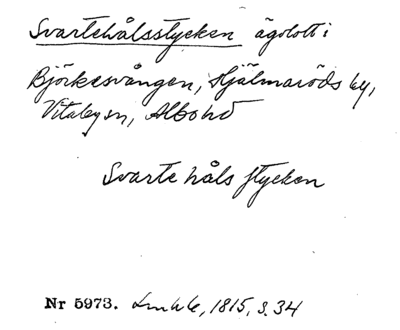 Svartehålsstycken ägolott i
Björkesvången, Hjälmaröds by,
Vitaby sn, Albo hd
Svarte håls stycken
Nr 5973. 1815, s. 34